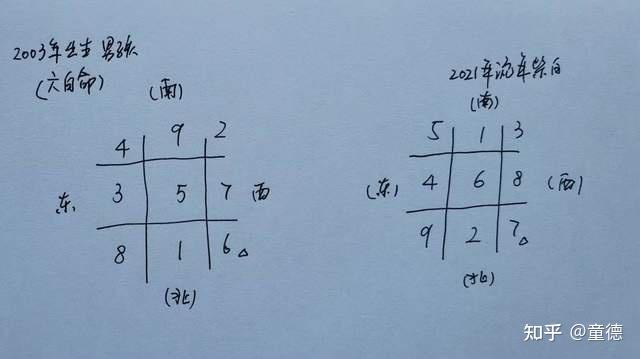 2003年出生男孩
(六白命)
(南)
4 9 2
东 3 5 7 西
8 1 6△
(北)
2021年流年紫白
(南)
5 1 3
(东) 4 6 8 (西)
9 2 7△
(北)
知乎 @童德